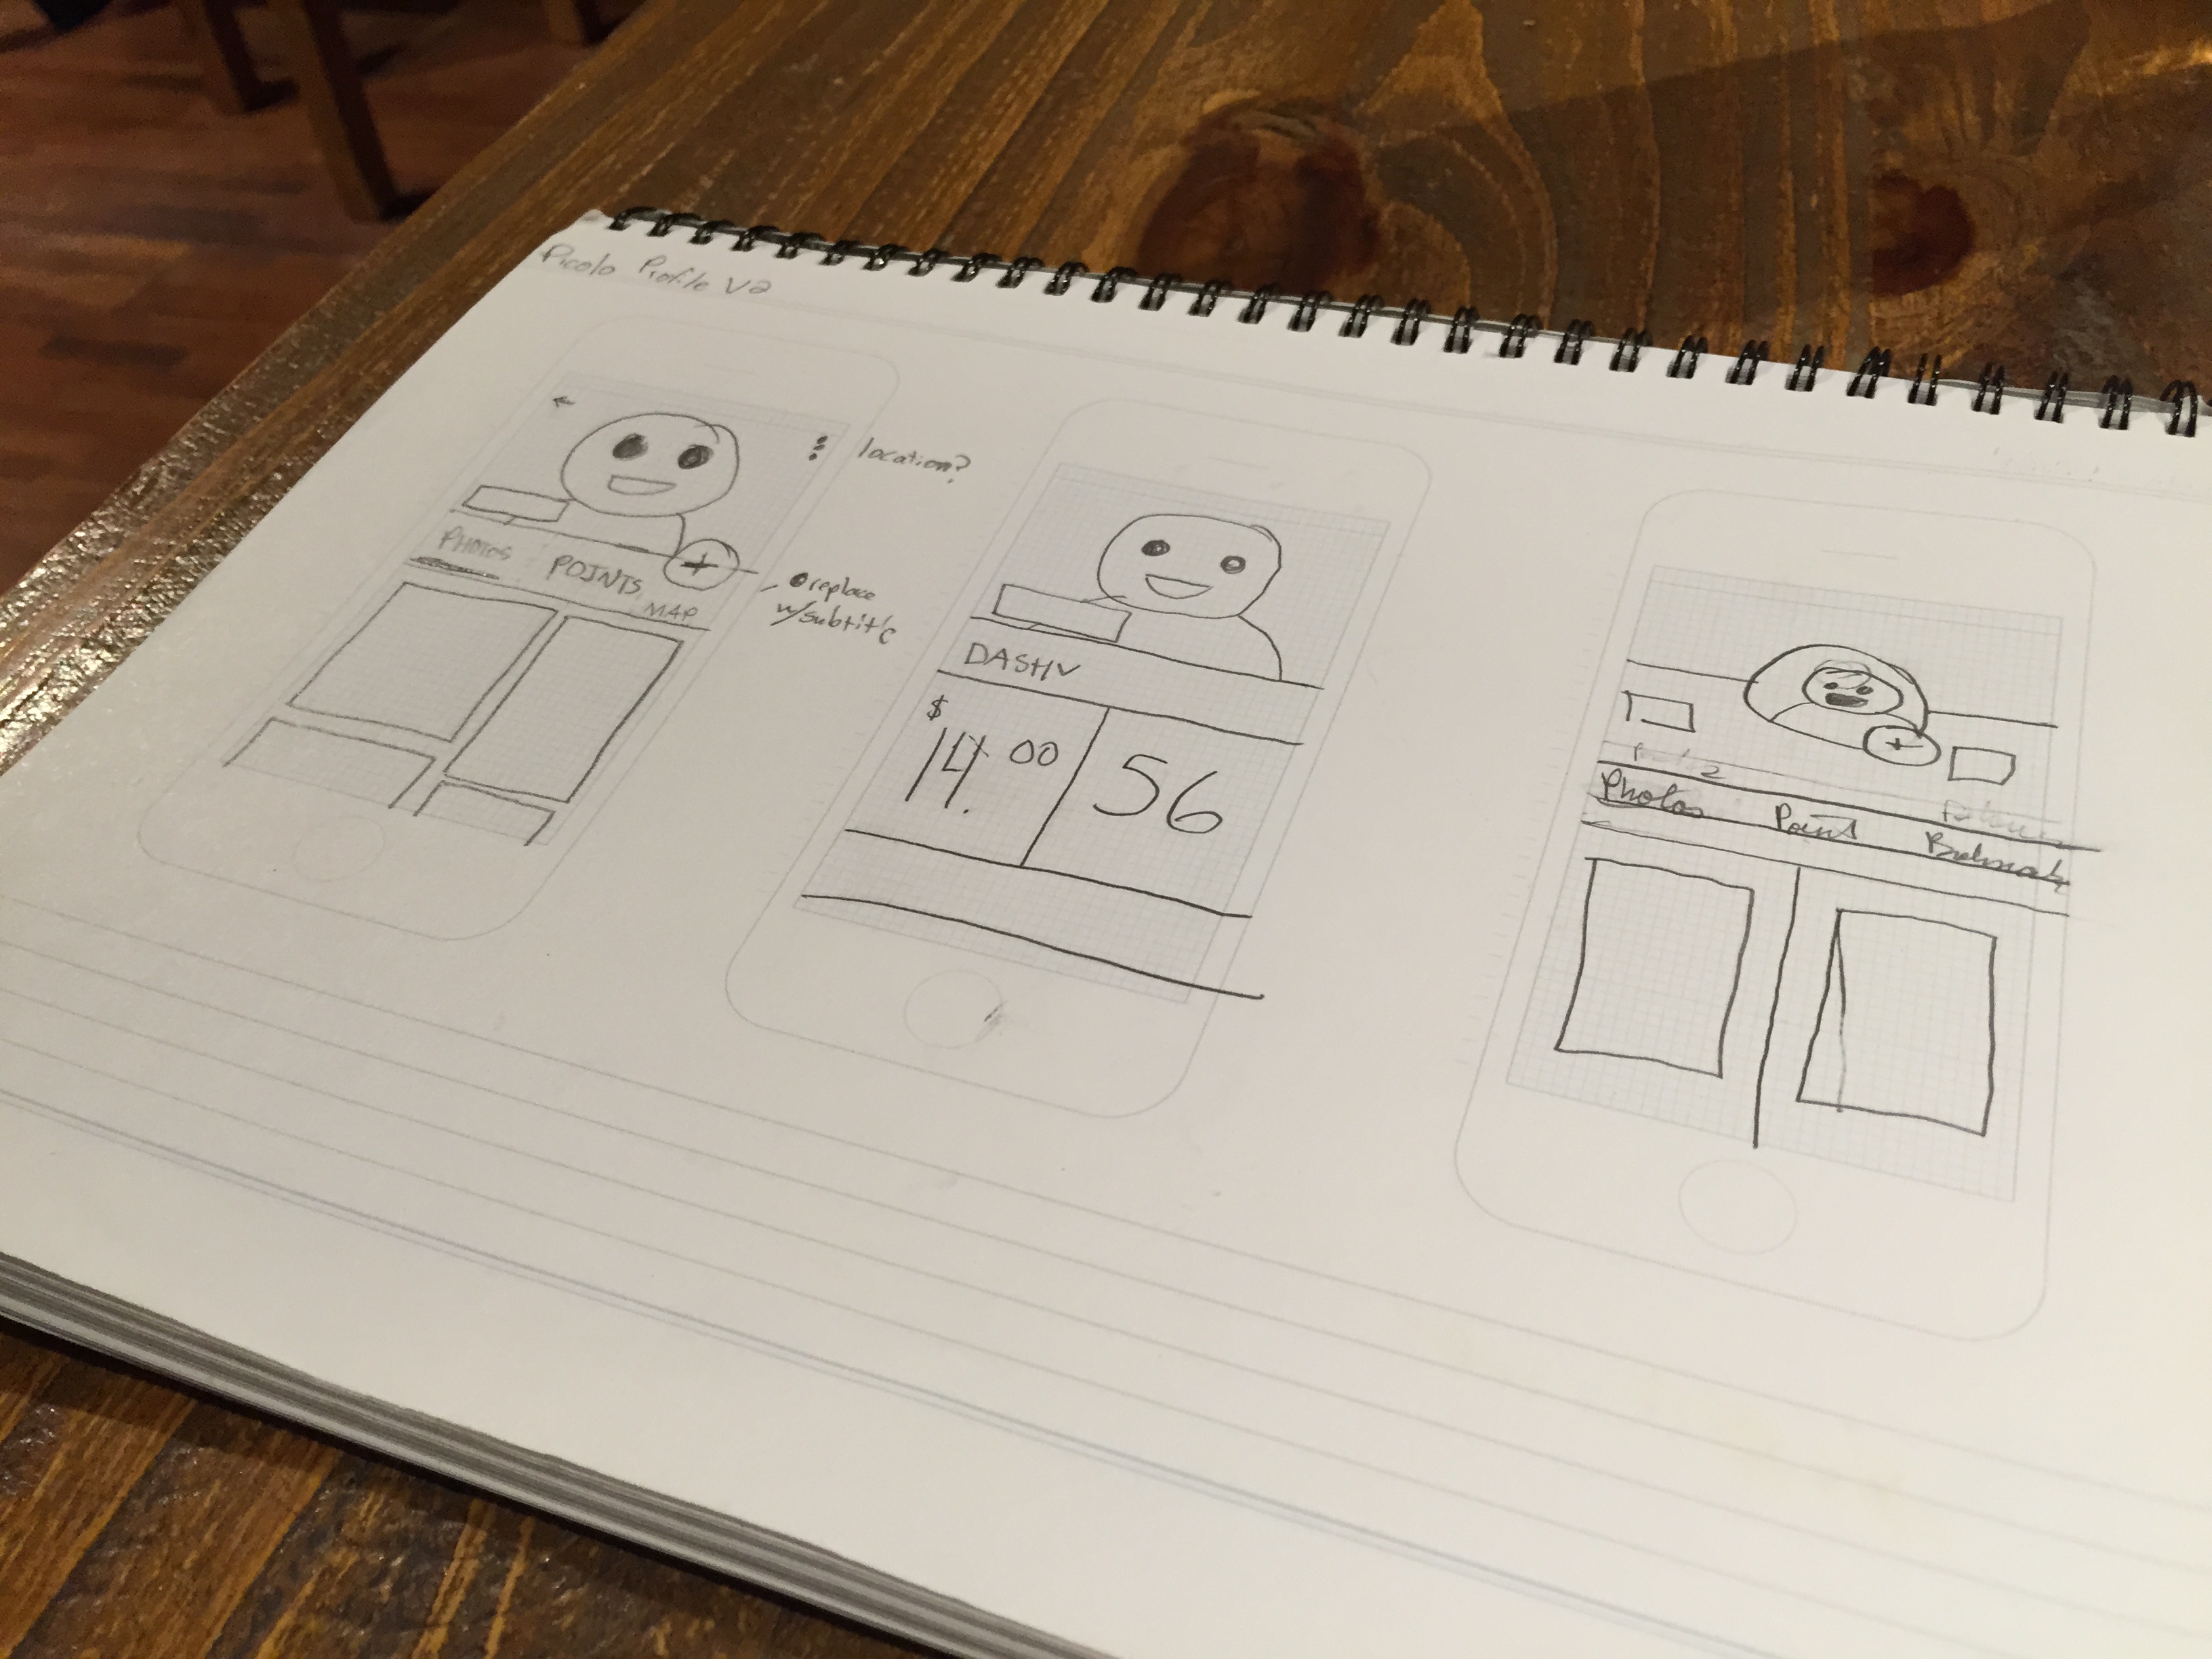 Picolo Profile V2
location?
PHOTOS POINTS MAP
+
replace
w/subtitle
DASH
$
14.00
56
+
Photos Point